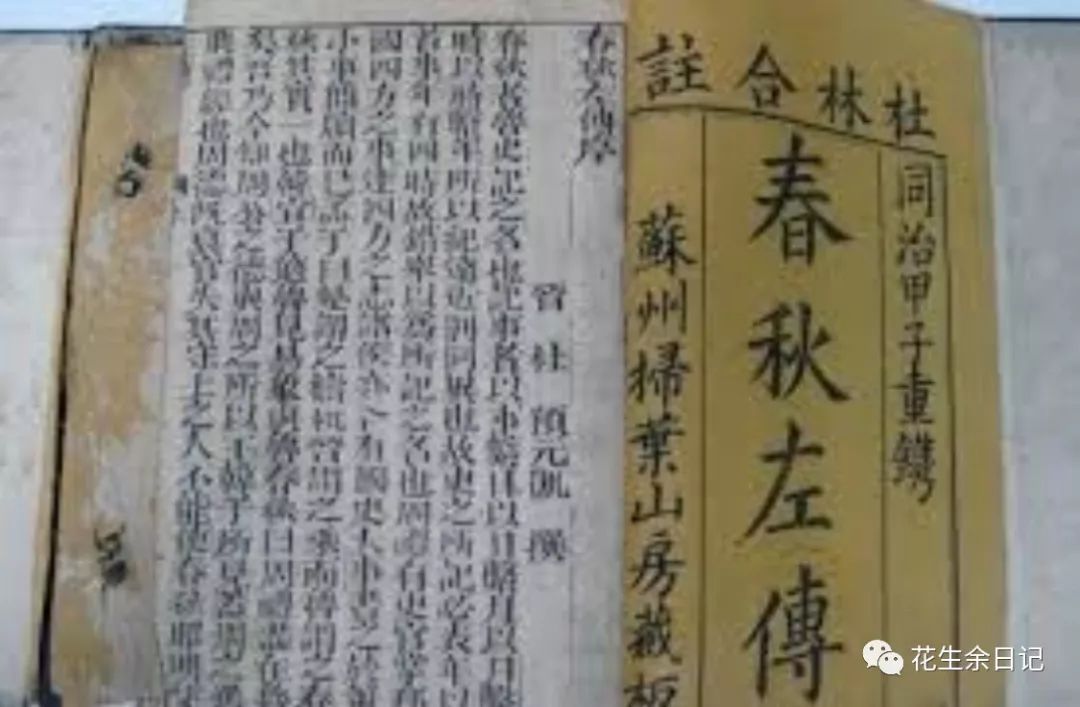 杜林合註
同治甲子重鐫
春秋左傳
蘇州掃葉山房藏板
春秋左傳序
晉 杜 預元凱 撰
春秋者魯史記之名也記事者以事繫日以日繫月以月繫
時以時繫年所以紀遠近別同異也故史之所記必表年以
首事年有四時故錯舉以爲所記之名也周禮有史官掌邦
國四方之事達四方之志諸侯亦各有國史大事書之於策
小事簡牘而已孟子曰楚謂之檮杌晉謂之乘而魯謂之春
秋其實一也韓宣子適魯見易象與魯春秋曰周禮盡在魯
矣吾乃今知周公之德與周之所以王韓子所見蓋周之舊
典禮經也周德既衰官失其守上之人不能使春秋昭明
花生余日记